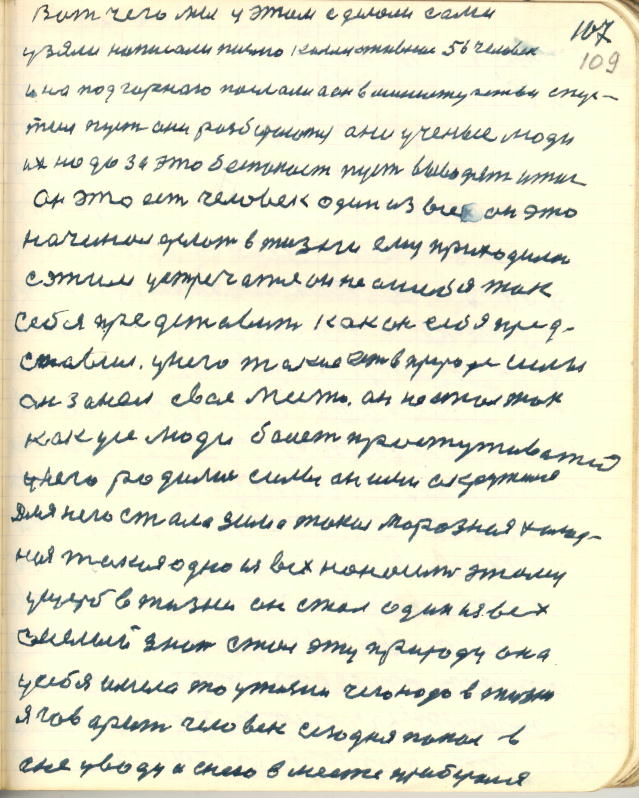 107
109
Вот чего мы у этом сделали сами
узяли написали письмо коллективное 56 человек
и на подгорного послали а он в министерство спус-
тил пуст они разберается они ученые люди
их надо за это беспокоит пуст выводят итог
Он это ест человек один из всех он это
начинал делат в жизни ему приходилос
с этим устречатся он не сумел так
себя представит как он себя пред-
ставил. у него такие ест в природе силы
он занял свое место. он не стал так
как усе люди боится простуживатся
у него родилис силы он ими окружился
для него стала зима такая морозная холод-
ная такая одна из всех наносит этому
ущерб в жизни он стал один из всех
смелый знат стал эту природу она
у себя имела то у жизни чего надо в жизни
я говорит человек сегодня попал в
сне у воду и снего в месте прибурился